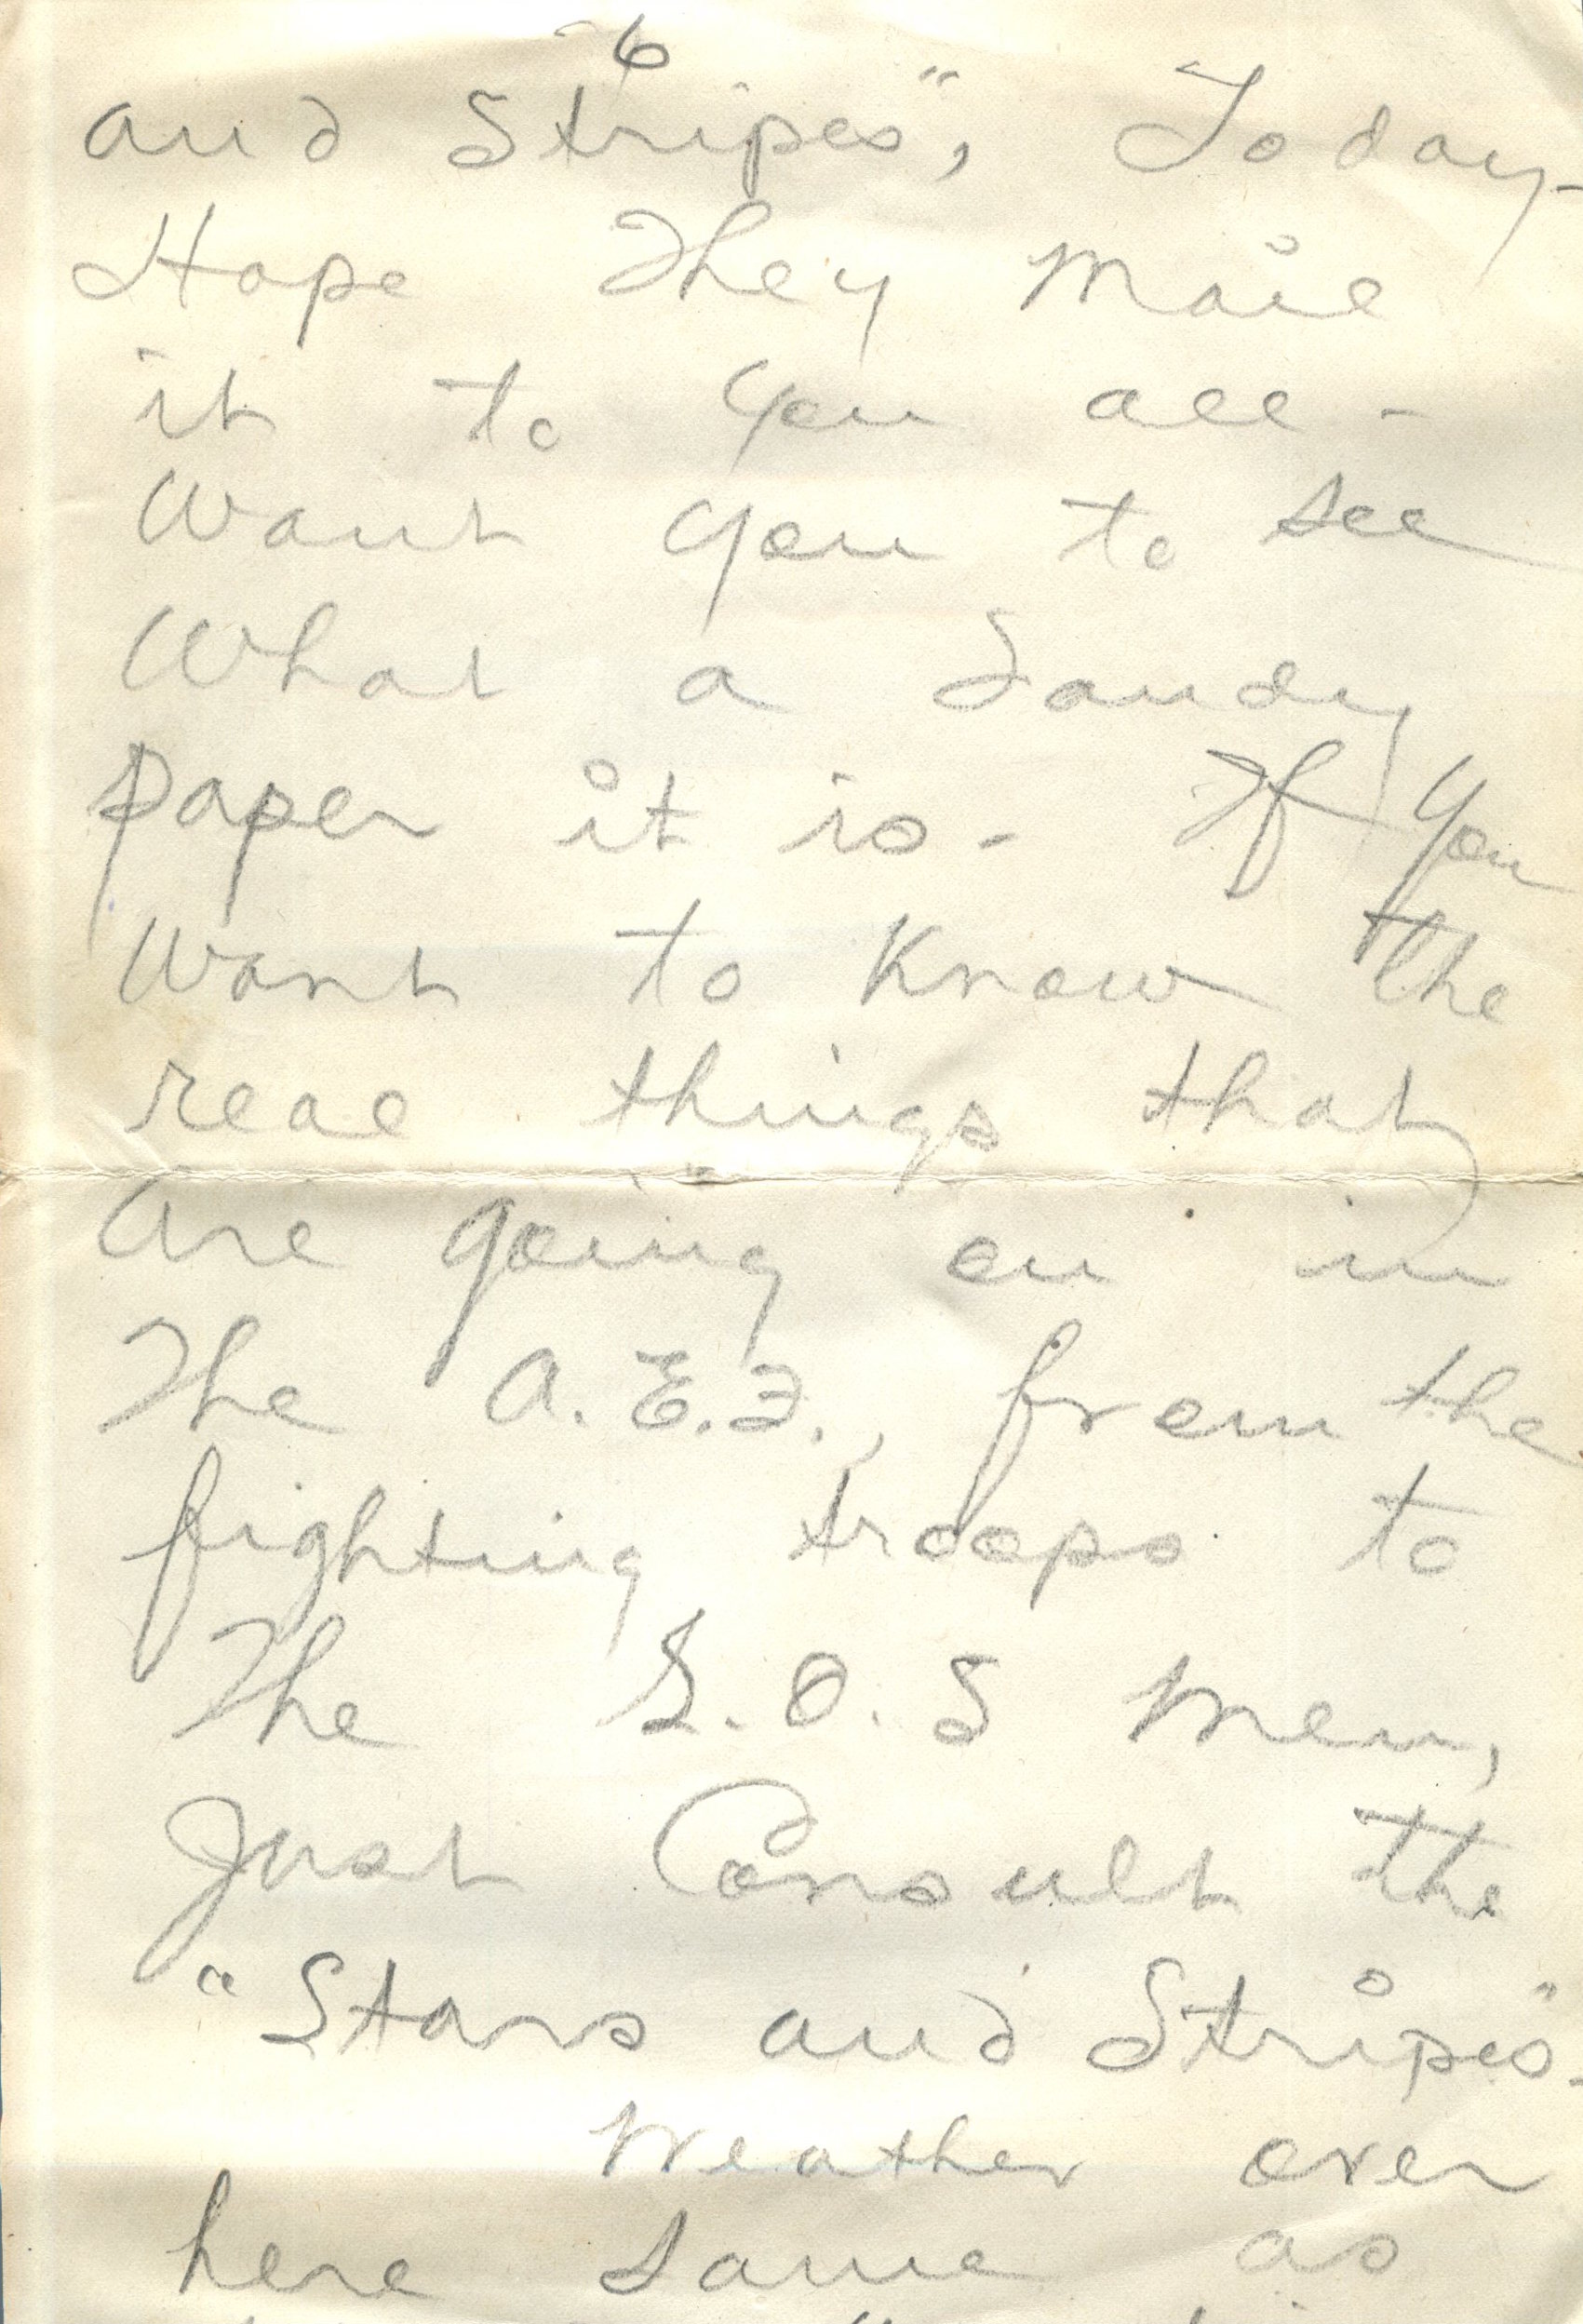 6
and Stripes", Today -
Hope They mail
it to You all -
Want You to see
What a Dandy
paper it is - If You
Want to Know the
real things that
are going on in
The A.E.F., from the
fighting troops to
The S.O.S Men,
Just Consult the
"Stars and Stripes" -
Weather over
here same as